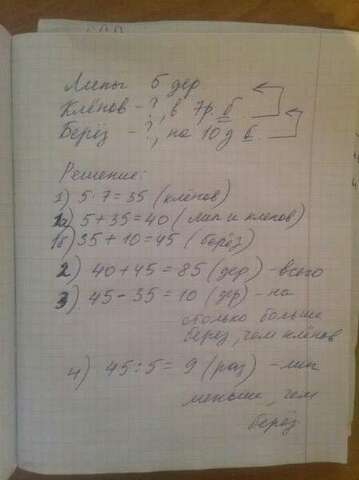 Липы 5 дер
Клёнов - ?, в 7 р. б.
Берёз - ?, на 10 д б.
Решение:
1) 5·7=35 (клёнов)
1а) 5+35=40 (лип и клёнов)
1б) 35+10=45 (берёз)
2) 40+45=85 (дер) - всего
3) 45-35=10 (др) - на
столько больше
берёз, чем клёнов
4) 45:5= 9 (раз) - лип
меньше, чем
берёз